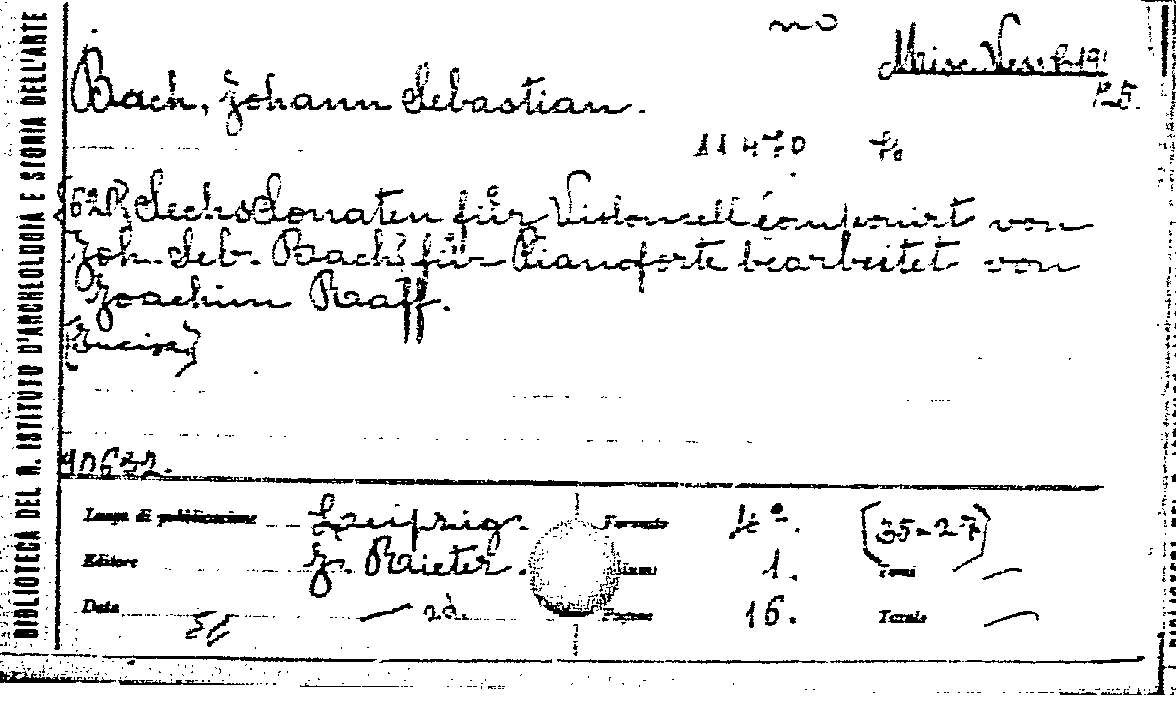 BIBLIOTECA DEL R. ISTITUTO D'ARCHEOLOGIA E STORIA DELL'ARTE
no
Misc. Vess.
Bach, Johann Sebastian.
11470
Sechs Sonaten für Violoncell componirt von
Joh. Seb. Bach für Pianoforte bearbeitet von
Joachim Raff.
90632.
Luogo di pubblicazione Leipzig. Formato 4°. (35-27)
Editore J. Rieter. Volumi 1. Tomi —
Data — Pagine 16. Tavole —